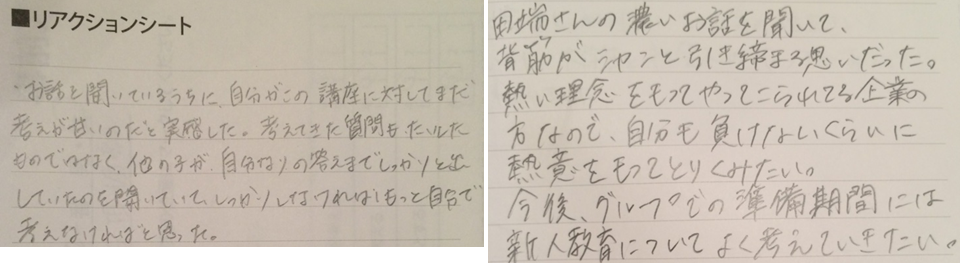 ■リアクションシート
・お話を聞いているうちに、自分がこの講座に対してまだ
考えが甘いのだと実感した。考えてきた質問もたいした
ものではなく、他の子が、自分なりの答えまでしっかりと出
していたのを聞いていて、しっかりしなければ、もっと自分で
考えなければと思った。
田端さんの濃いお話を聞いて、
背筋がシャンと引き締まる思いだった。
熱い理念をもってやってこられてる企業の
方なので、自分も負けないくらいに
熱意をもってとりくみたい。
今後、グループでの準備期間には
新人教育についてよく考えていきたい。